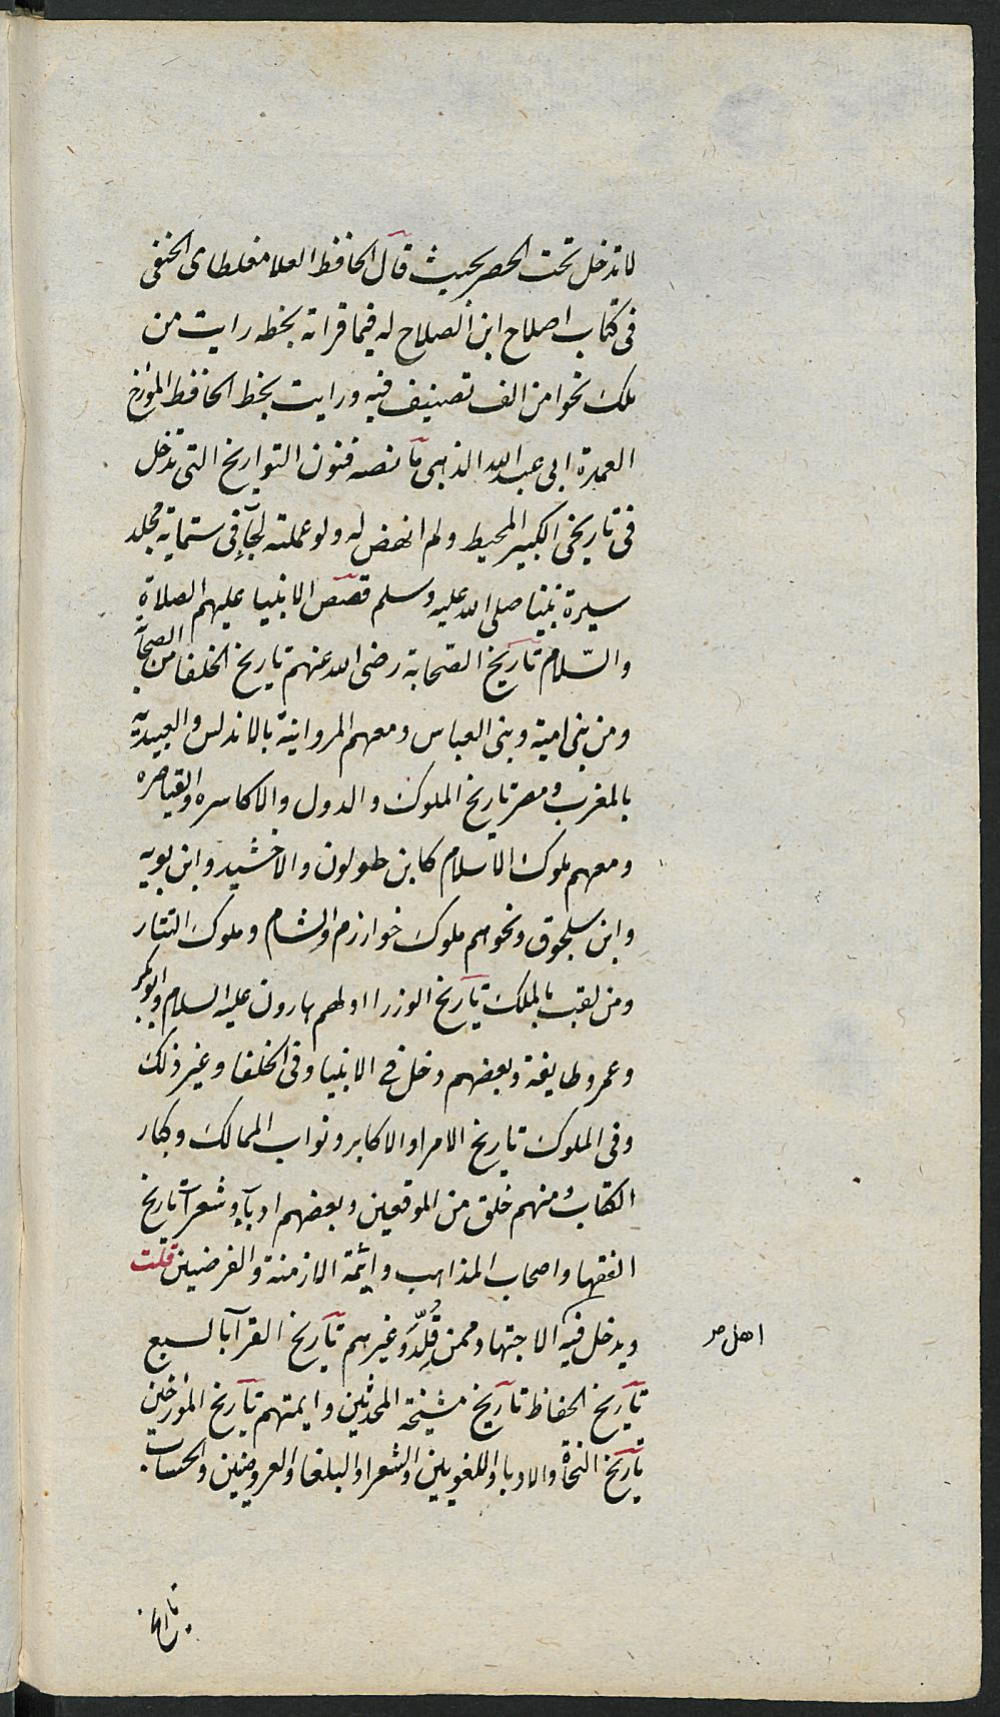 لا تدخل تحت الحصر بحيث قال الحافظ العلا مغلطاى الحنفى
فى كتاب اصلاح ابن الصلاح له فيما قراته بخطه رايت من
ملك نحوا من الف تصنيف فيه ورايت بخط الحافظ المؤرخ
العمدة ابى عبد الله الذهبى ما نصه فنون التواريخ التى تدخل
فى تاريخى الكبير المحيط ولم انهض له ولو عملته لجآء فى ستماية مجلد
سيرة نبينا صلى الله عليه وسلم قصص الانبيا عليهم الصلاة
والسّلام تاريخ الصّحابة رضى الله عنهم تاريخ الخلفا من الصحابة
ومن بنى امية وبنى العباس ومعهم المروانية بالاندلس والعبيدية
بالمغرب ومصر تاريخ الملوك والدول والاكاسره والقياصره
ومعهم ملوك الاسلام كابن طولون والاخشيد وابن بويه
وابن سلجوق ونحوهم ملوك خوارزم والشام وملوك التتار
ومن لقب بالملك تاريخ الوزرا اولهم هارون عليه السلام وابو بكر
وعمر وطايفة وبعضهم دخل فى الانبيا وفى الخلفا وغير ذلك
وفى الملوك تاريخ الامرا والاكابر ونواب الممالك وكبار
الكتاب ومنهم خلق من الموقعين وبعضهم ادبآء وشعرآ تاريخ
الفقها واصحاب المذاهب وائمة الازمنة والفرضيين قلت
ويدخل فيه الاجتهاد ممن قُلِّدَ وغيرهم تاريخ القرآ بالسبع
اهل صح
تاريخ الحفاظ تاريخ مشيخة المحدثين وايمتهم تاريخ المؤرخين
تاريخ النحاة والادبا واللغويين والشعرا والبلغا والعروضيين والحساب